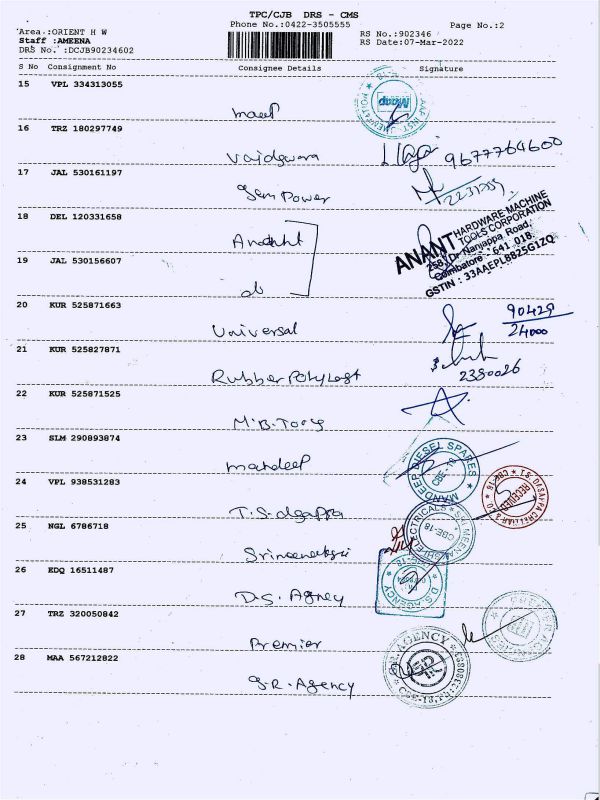 TPC/CJB DRS - CMS
Phone No.:0422-3505555
Page No.:2
Area.:ORIENT H W
Staff :AMEENA
DRS No. :DCJB90234602
RS No.:902346
RS Date:07-Mar-2022
S No Consignment No Consignee Details Signature
15 VPL 334313055
Maap
16 TRZ 180297749
Vaidewara 9677764600
17 JAL 530161197
Gem Power
18 DEL 120331658
ANANT HARDWARE-MACHINE
TOOLS CORPORATION
258, Dr Nanjappa Road,
Coimbatore - 641 018.
GSTIN : 33AAEPL8825G1ZQ
19 JAL 530156607
do
20 KUR 525871663
Universal 90429
24000
21 KUR 525827871
Rubber Polyplast 2380026
22 KUR 525871525
M.B. Tools
23 SLM 290893874
Mandeep
MANDEEP DIESEL SPARES
CBE-18
24 VPL 938531283
T.S. dsappa
RECEIVED
CBE-18
25 NGL 6786718
CBE-18
26 EDQ 16511487
D.S. Agney
D.S. AGENCY
27 TRZ 320050842
Premier
28 MAA 567212822
S.R. Agency
AGENCY